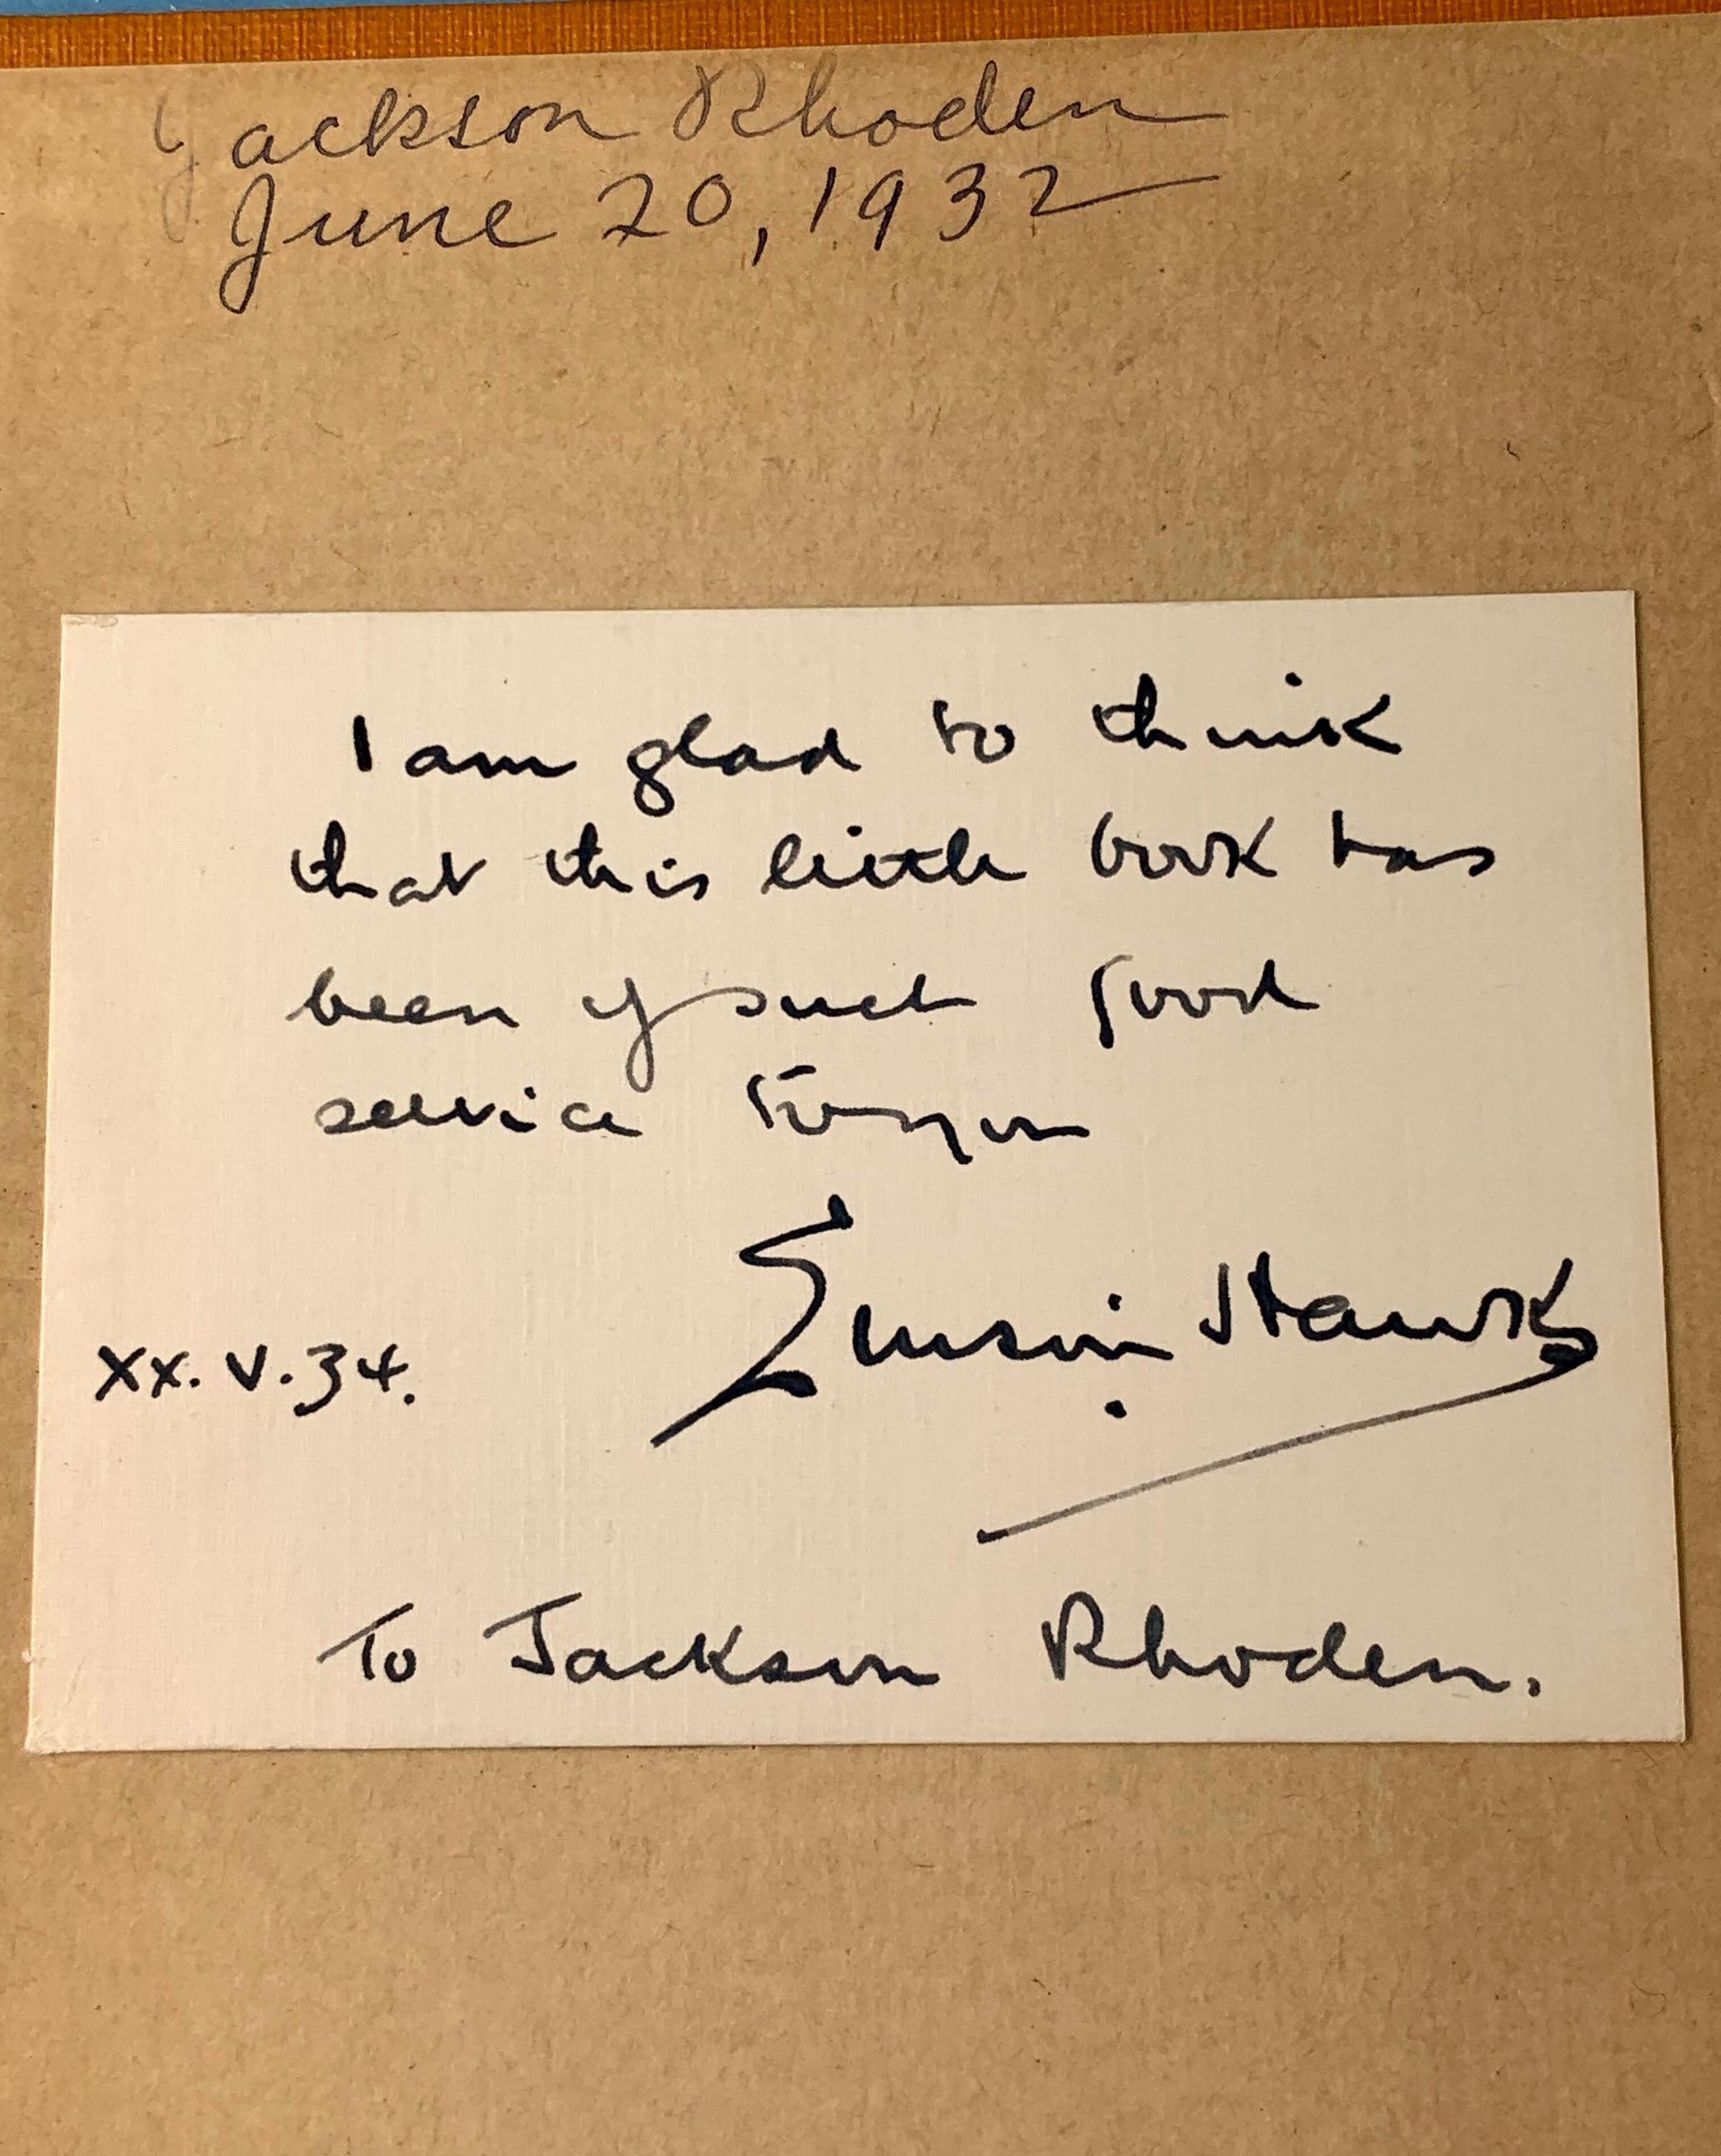 Jackson Rhoden
June 20, 1932
I am glad to think
that this little book has
been of such good
service to you
Emerson Hawks
XX.V.34.
To Jackson Rhoden.